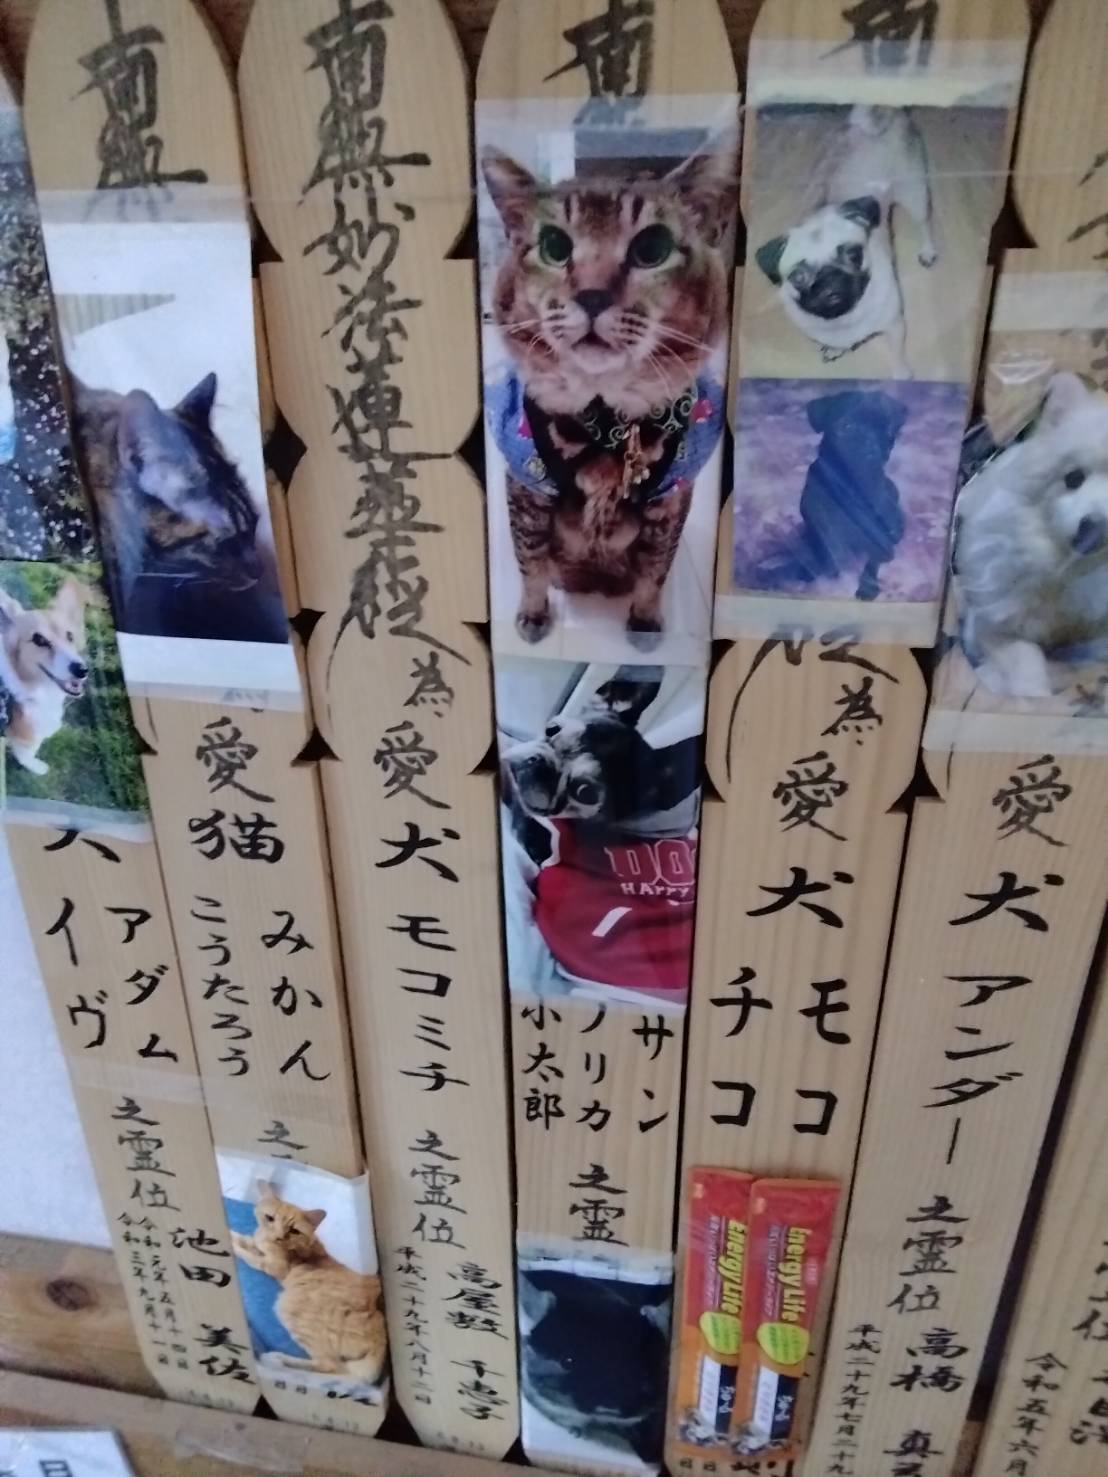 アダム
イヴ
之霊位
令和元年五月十四日
令和三年九月十一日
池田
美佐
南無
愛猫
みかん
こうたろう
之
南無妙法蓮華経
為
愛犬
モコミチ
之霊位
平成二十九年八月十二日
高屋敷
千恵子
南
サン
ノリカ
小太郎
之霊
DO
HAPPY
南
経
為
愛犬
モコ
チコ
Energy Life
Energy Life
ちゅ〜る
ちゅ〜る
愛犬
アンダー
之霊位
平成二十九年七月二十九
高橋
真
令和五年六月